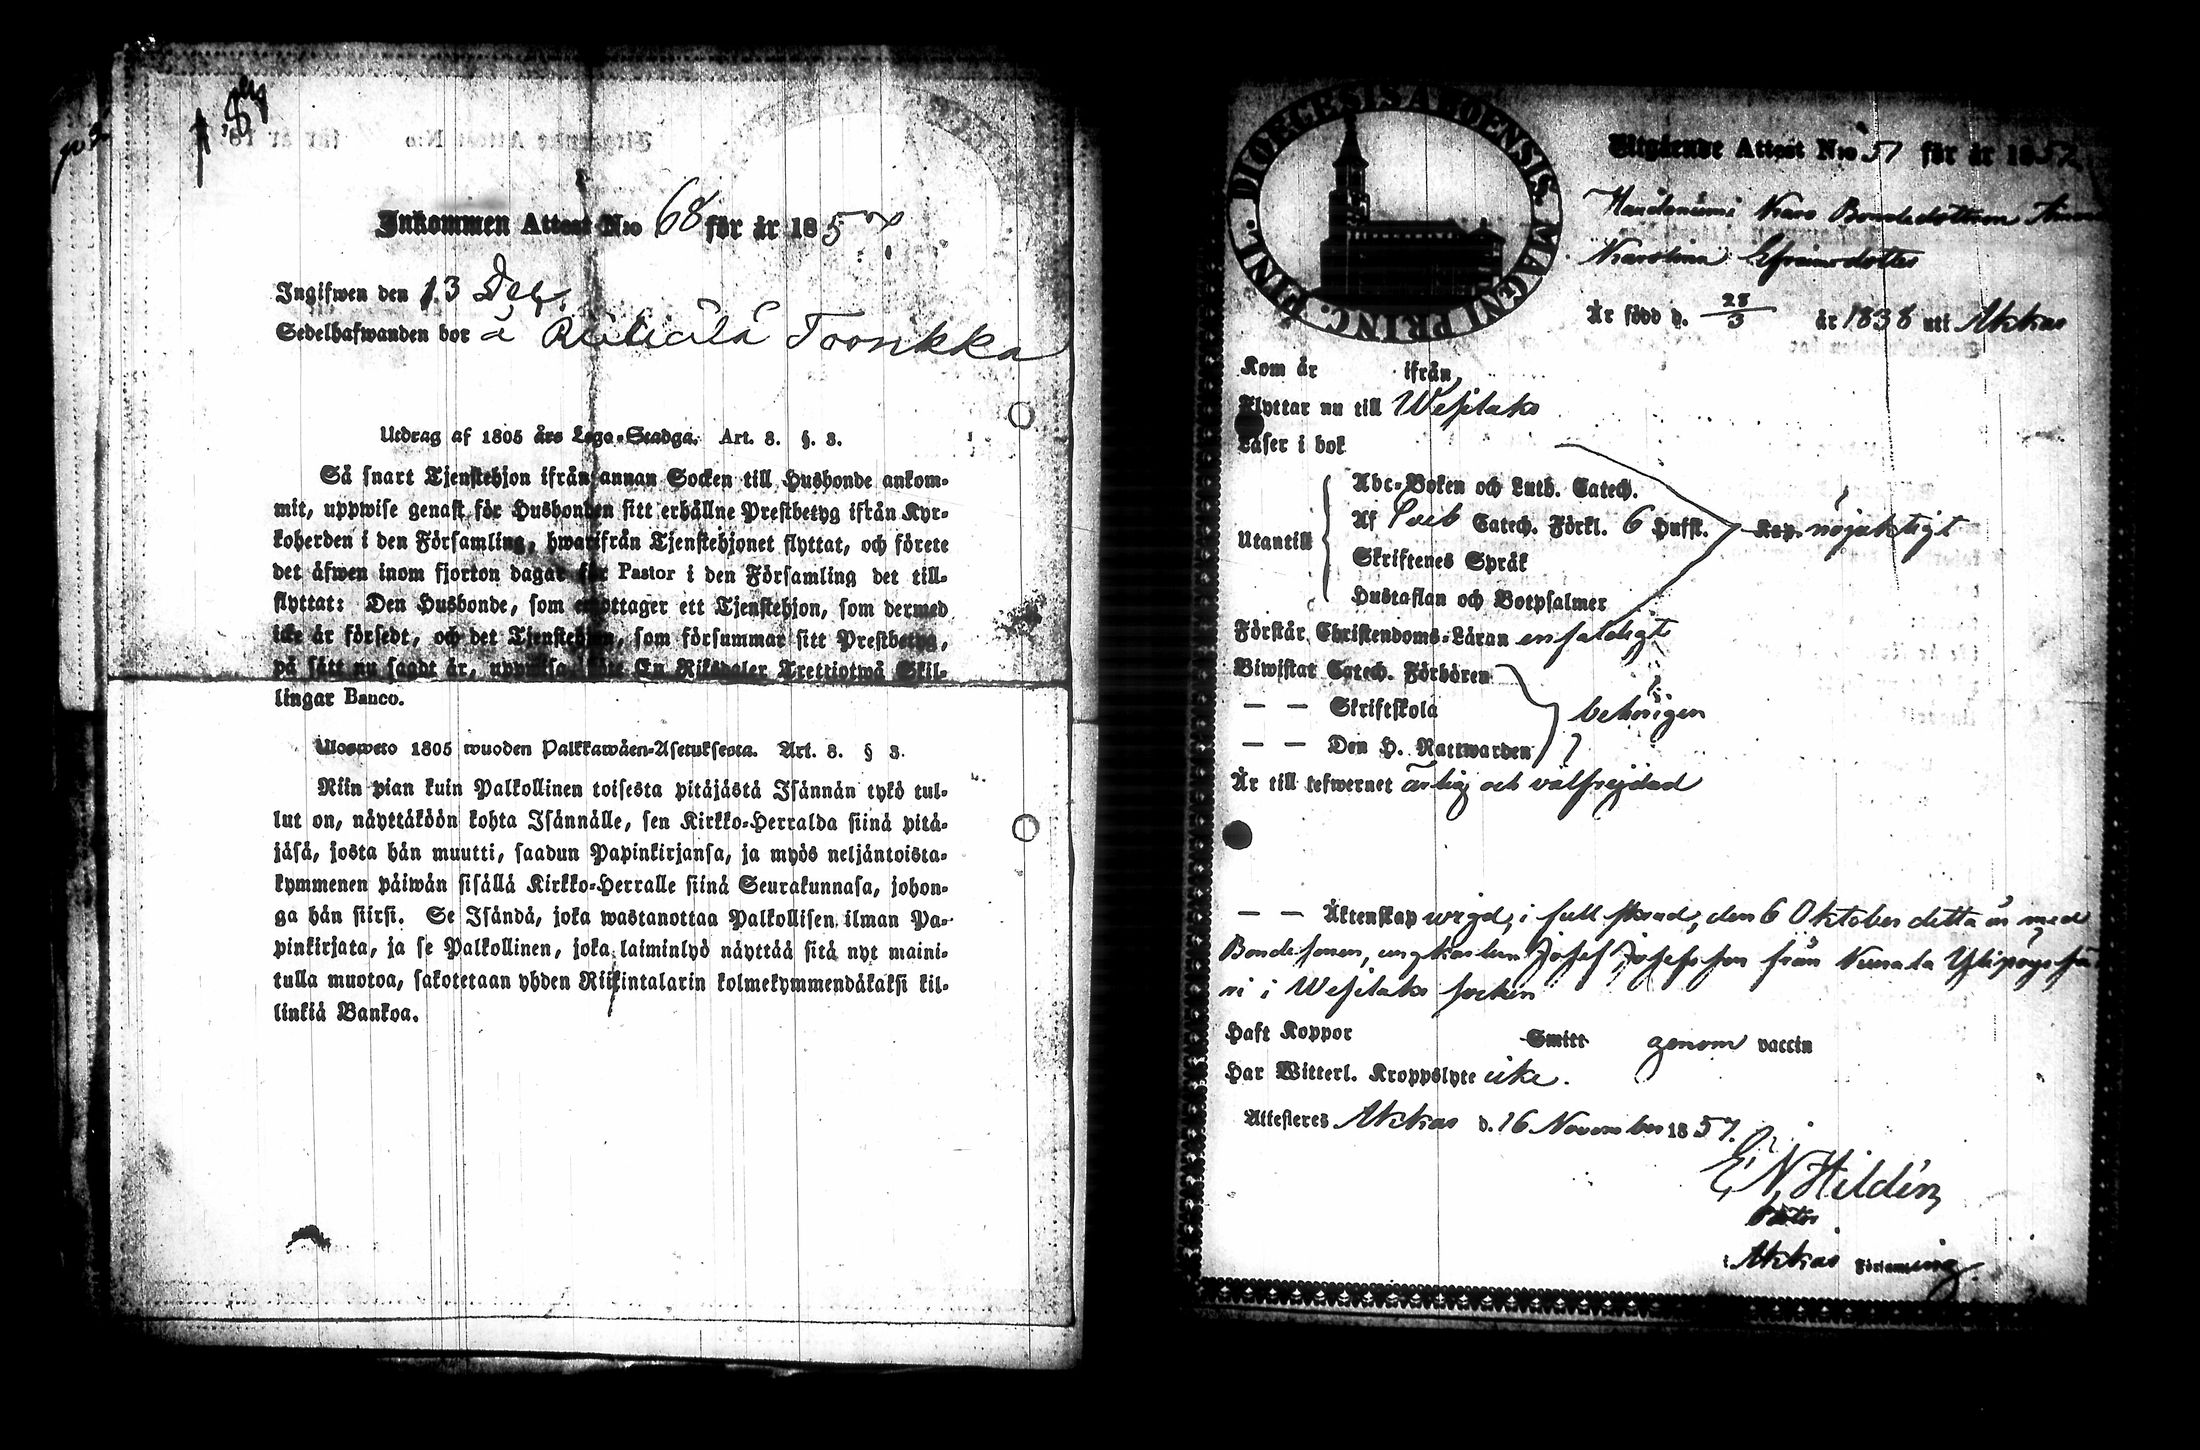 Inkommen Attest N:o 68 för år 1857
Ingifwen den 13 Dec.
Sedelhafwanden bor å Toonkka
Utdrag af 1805 års Lego-Stadga. Art. 8. §. 3.
Så snart Tjenstehjon ifrån annan Socken till Husbonde ankom-
mit, uppwise genast för Husbonden sitt erhållne Prestbetyg ifrån Kyr-
koherden i den Församling, hwarifrån Tjenstehjonet flyttat, och förete
det äfwen inom fjorton dagar för Pastor i den Församling det till-
flyttat: Den Husbonde, som emottager ett Tjenstehjon, som dermed
icke är försedt, och det Tjenstehjon, som försummar sitt Prestbetyg,
på sätt nu sagdt är, uppwisa, böte En Riksdaler Trettiotwå Skil-
lingar Banco.
Ulosweto 1805 wuoden Palkkawäen-Asetuksesta. Art. 8. § 3.
Niin pian kuin Palkollinen toisesta pitäjästä Isännän tykö tul-
lut on, näyttäköön kohta Isännälle, sen Kirkko-Herralda siinä pitä-
jäsä, josta hän muutti, saadun Papinkirjansa, ja myös neljäntoista-
kymmenen päiwän sisällä Kirkko-Herralle siinä Seurakunnasa, johon-
ga hän siirsi. Se Isändä, joka wastanottaa Palkollisen ilman Pa-
pinkirjata, ja se Palkollinen, joka laiminlyö näyttää sitä nyt maini-
tulla muotoa, sakotetaan yhden Riikintalarin kolmekymmendäkaksi kil-
linkiä Bankoa.
DIOECESIS ABOENSIS. MAGNI PRINC. FINL.
Utgående Attest N:o 51 för år 1857
Karo Bondedottren
Karolina Efraimsdotter
Är född d. 28/3 år 1838 uti Akkas
Kom år ifrån
Flyttar nu till Wesilaks
Läser i bok
Abc-Boken och Luth. Catech.
Utantill Af Catech. Förkl. 6 Hufst. Kap. nöjaktigt
Skriftenes Språk
Hustaflan och Botpsalmer
Förstår Christendoms-Läran enfaldigt
Biwistat Catech. Förhören
— — Skriftskola behörigen
— — Den H. Nattwarden
Är till lefwernet ärlig och välfrejdad
— — Äktenskap wigd, i full stånd, den 6 Oktober detta år med
Bondesonen, ungkarlen Josef Josefsson från
ni i Wesilaks socken
Haft Koppor Smitt genom vaccin
Har Witterl. Kroppslyte icke.
Attesteres Akkas d. 16 November 1857.
E. N. Hildén
Pastor
i Akkas Församling